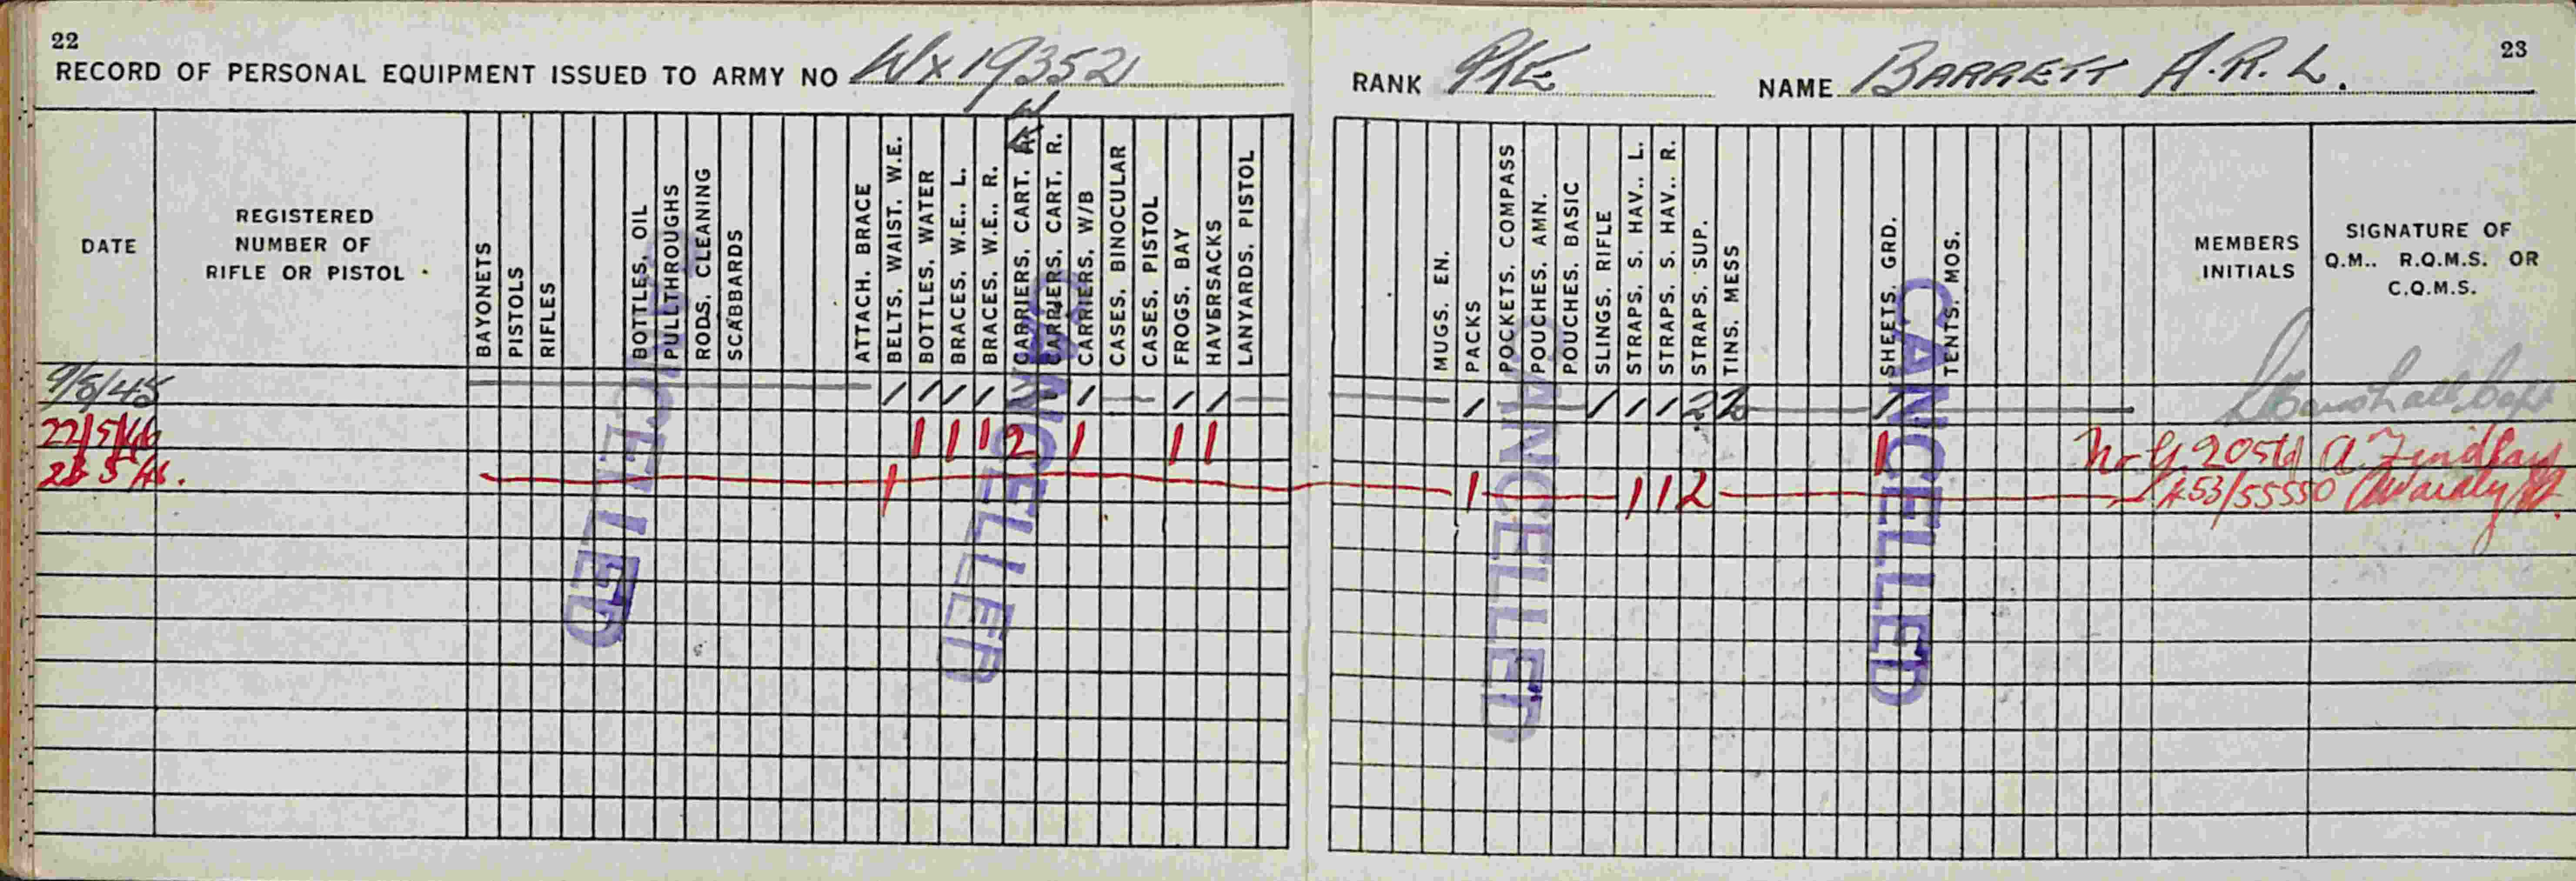 22
RECORD OF PERSONAL EQUIPMENT ISSUED TO ARMY NO Wx19352
RANK Pte NAME BARRETT A.R.L.
23
DATE
REGISTERED
NUMBER OF
RIFLE OR PISTOL
BAYONETS
PISTOLS
RIFLES
BOTTLES, OIL
PULLTHROUGHS
RODS, CLEANING
SCABBARDS
ATTACH. BRACE
BELTS. WAIST. W.E.
BOTTLES. WATER
BRACES. W.E., L.
BRACES. W.E., R.
CARRIERS. CART.
CARRIERS. CART. R.
CARRIERS. W/B
CASES. BINOCULAR
CASES. PISTOL
FROGS. BAY
HAVERSACKS
LANYARDS. PISTOL
MUGS. EN.
PACKS
POCKETS. COMPASS
POUCHES. AMN.
POUCHES. BASIC
SLINGS. RIFLE
STRAPS. S. HAV.. L.
STRAPS. S. HAV.. R.
STRAPS. SUP.
TINS. MESS
SHEETS. GRD.
TENTS. MOS.
MEMBERS
INITIALS
SIGNATURE OF
Q.M.. R.Q.M.S. OR
C.Q.M.S.
9/5/45 1 1 1 1 1 1 1 1 1 1 1 2 2 1
22/5/46 1 1 1 2 1 1 1 1 A Findlay
1 1 1 1 2
CANCELLED
CANCELLED
CANCELLED
CANCELLED